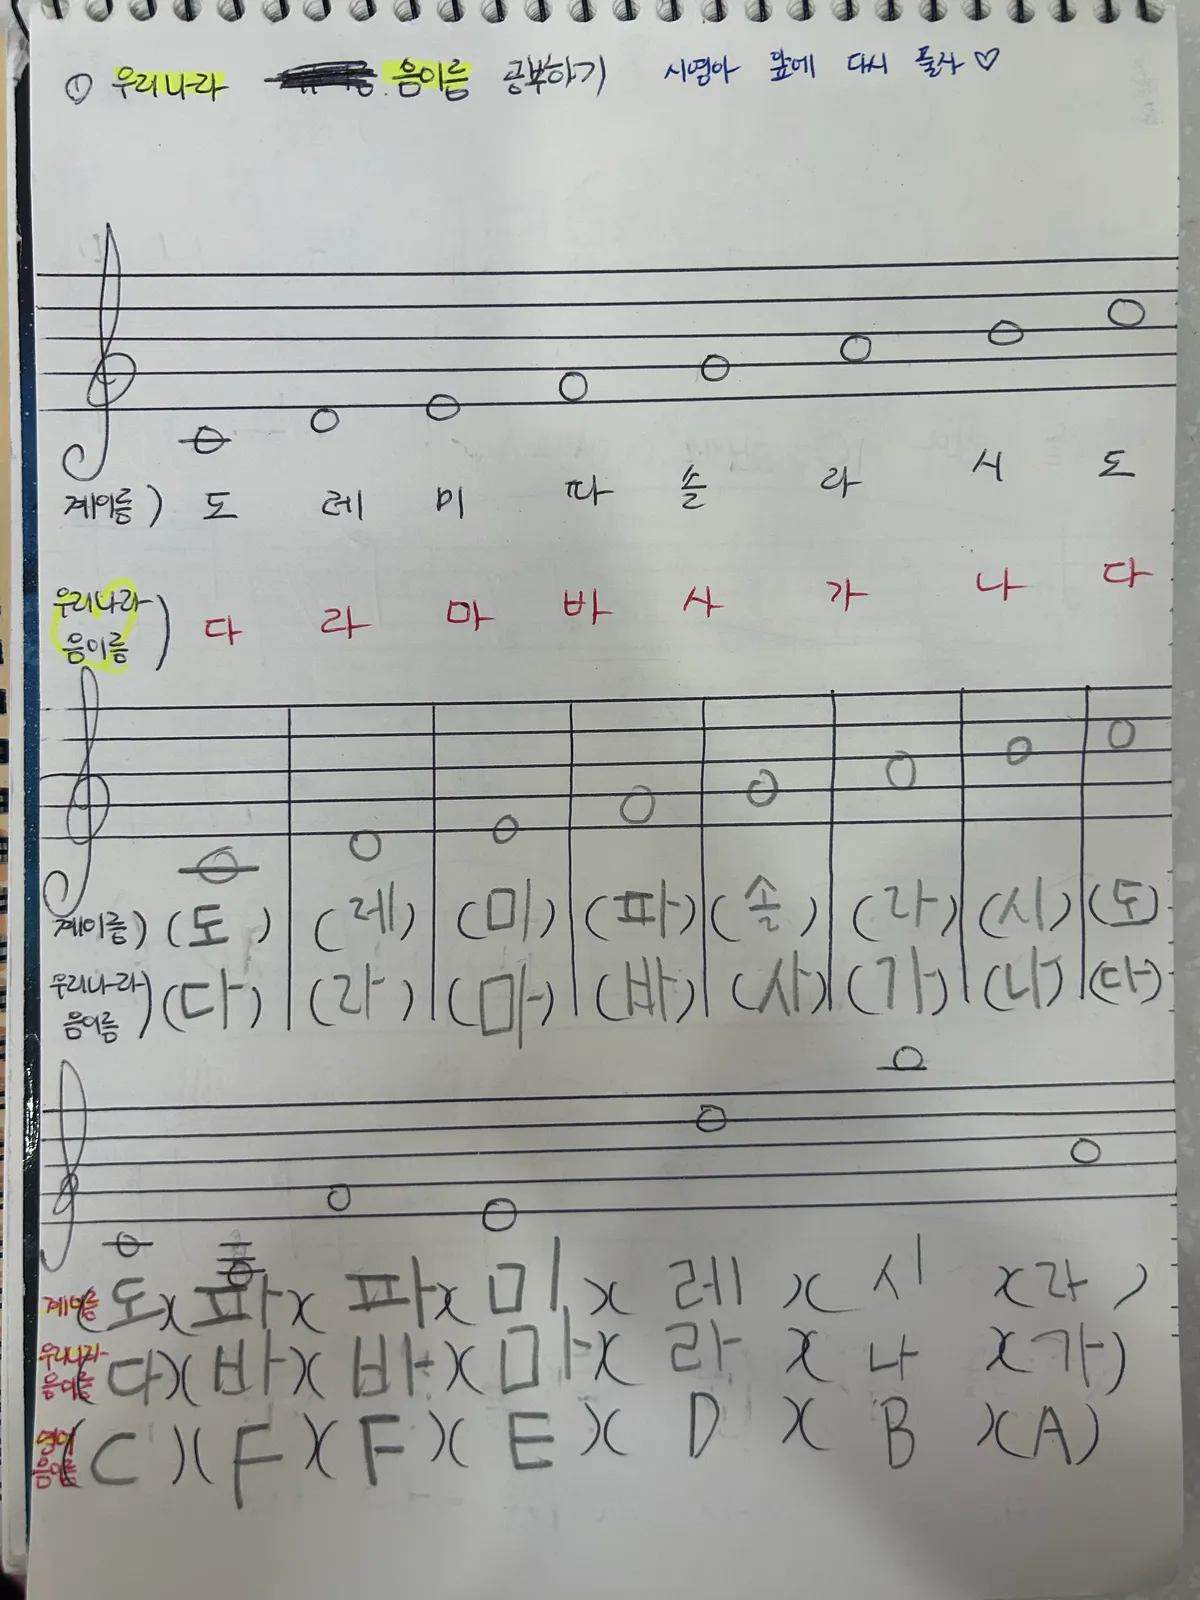 ① 우리나라 음이름 공부하기 시영아 앞에 다시 풀자♡
계이름) 도 레 미 파 솔 라 시 도
우리나라 음이름) 다 라 마 바 사 가 나 다
계이름) (도) (레) (미) (파) (솔) (라) (시) (도)
우리나라 음이름) (다) (라) (마) (바) (사) (가) (나) (다)
계이름 (도)(파)(파)(미)(레)(시)(라)
우리나라 음이름 (다)(바)(바)(마)(라)(나)(가)
영어 음이름 (C)(F)(F)(E)(D)(B)(A)